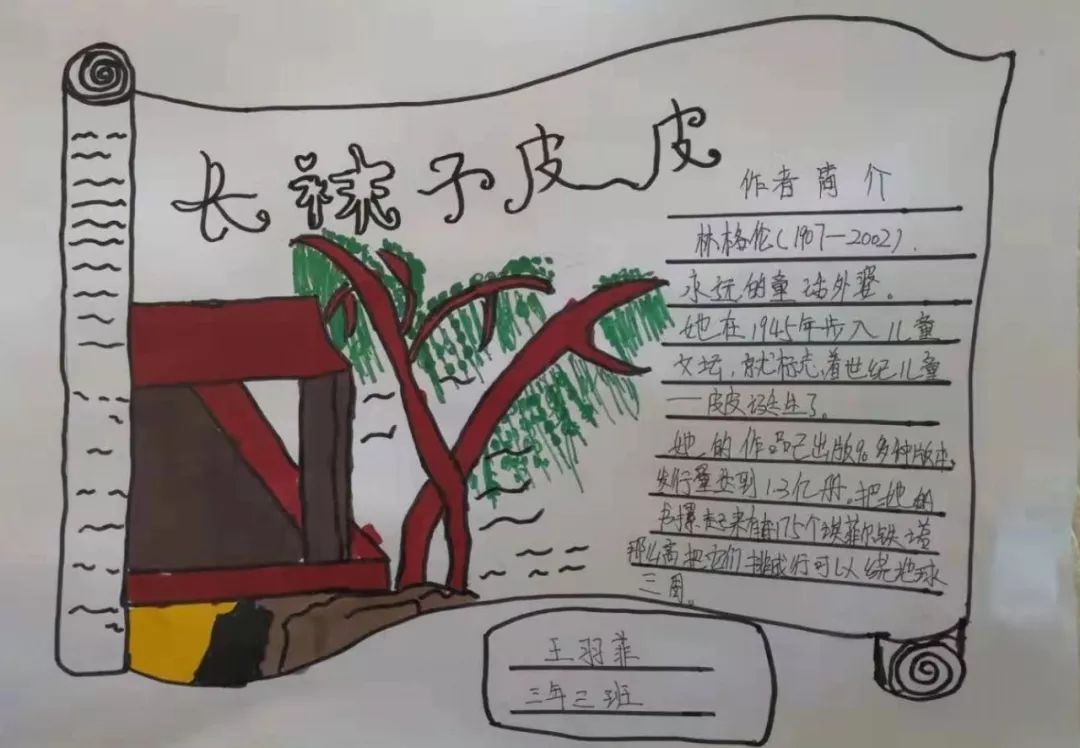 长袜子皮皮
作者简介
林格伦(1907—2002).
永远的童话外婆。
她在1945年步入儿童
文坛,就标志着世纪儿童
—皮皮诞生了。
她的作品已出版 多种版本,
发行量达到1.3亿册。把她的
书摞起来有175个埃菲尔铁塔
那么高把它们排成行可以绕地球
三周。
王羽菲
三年三班